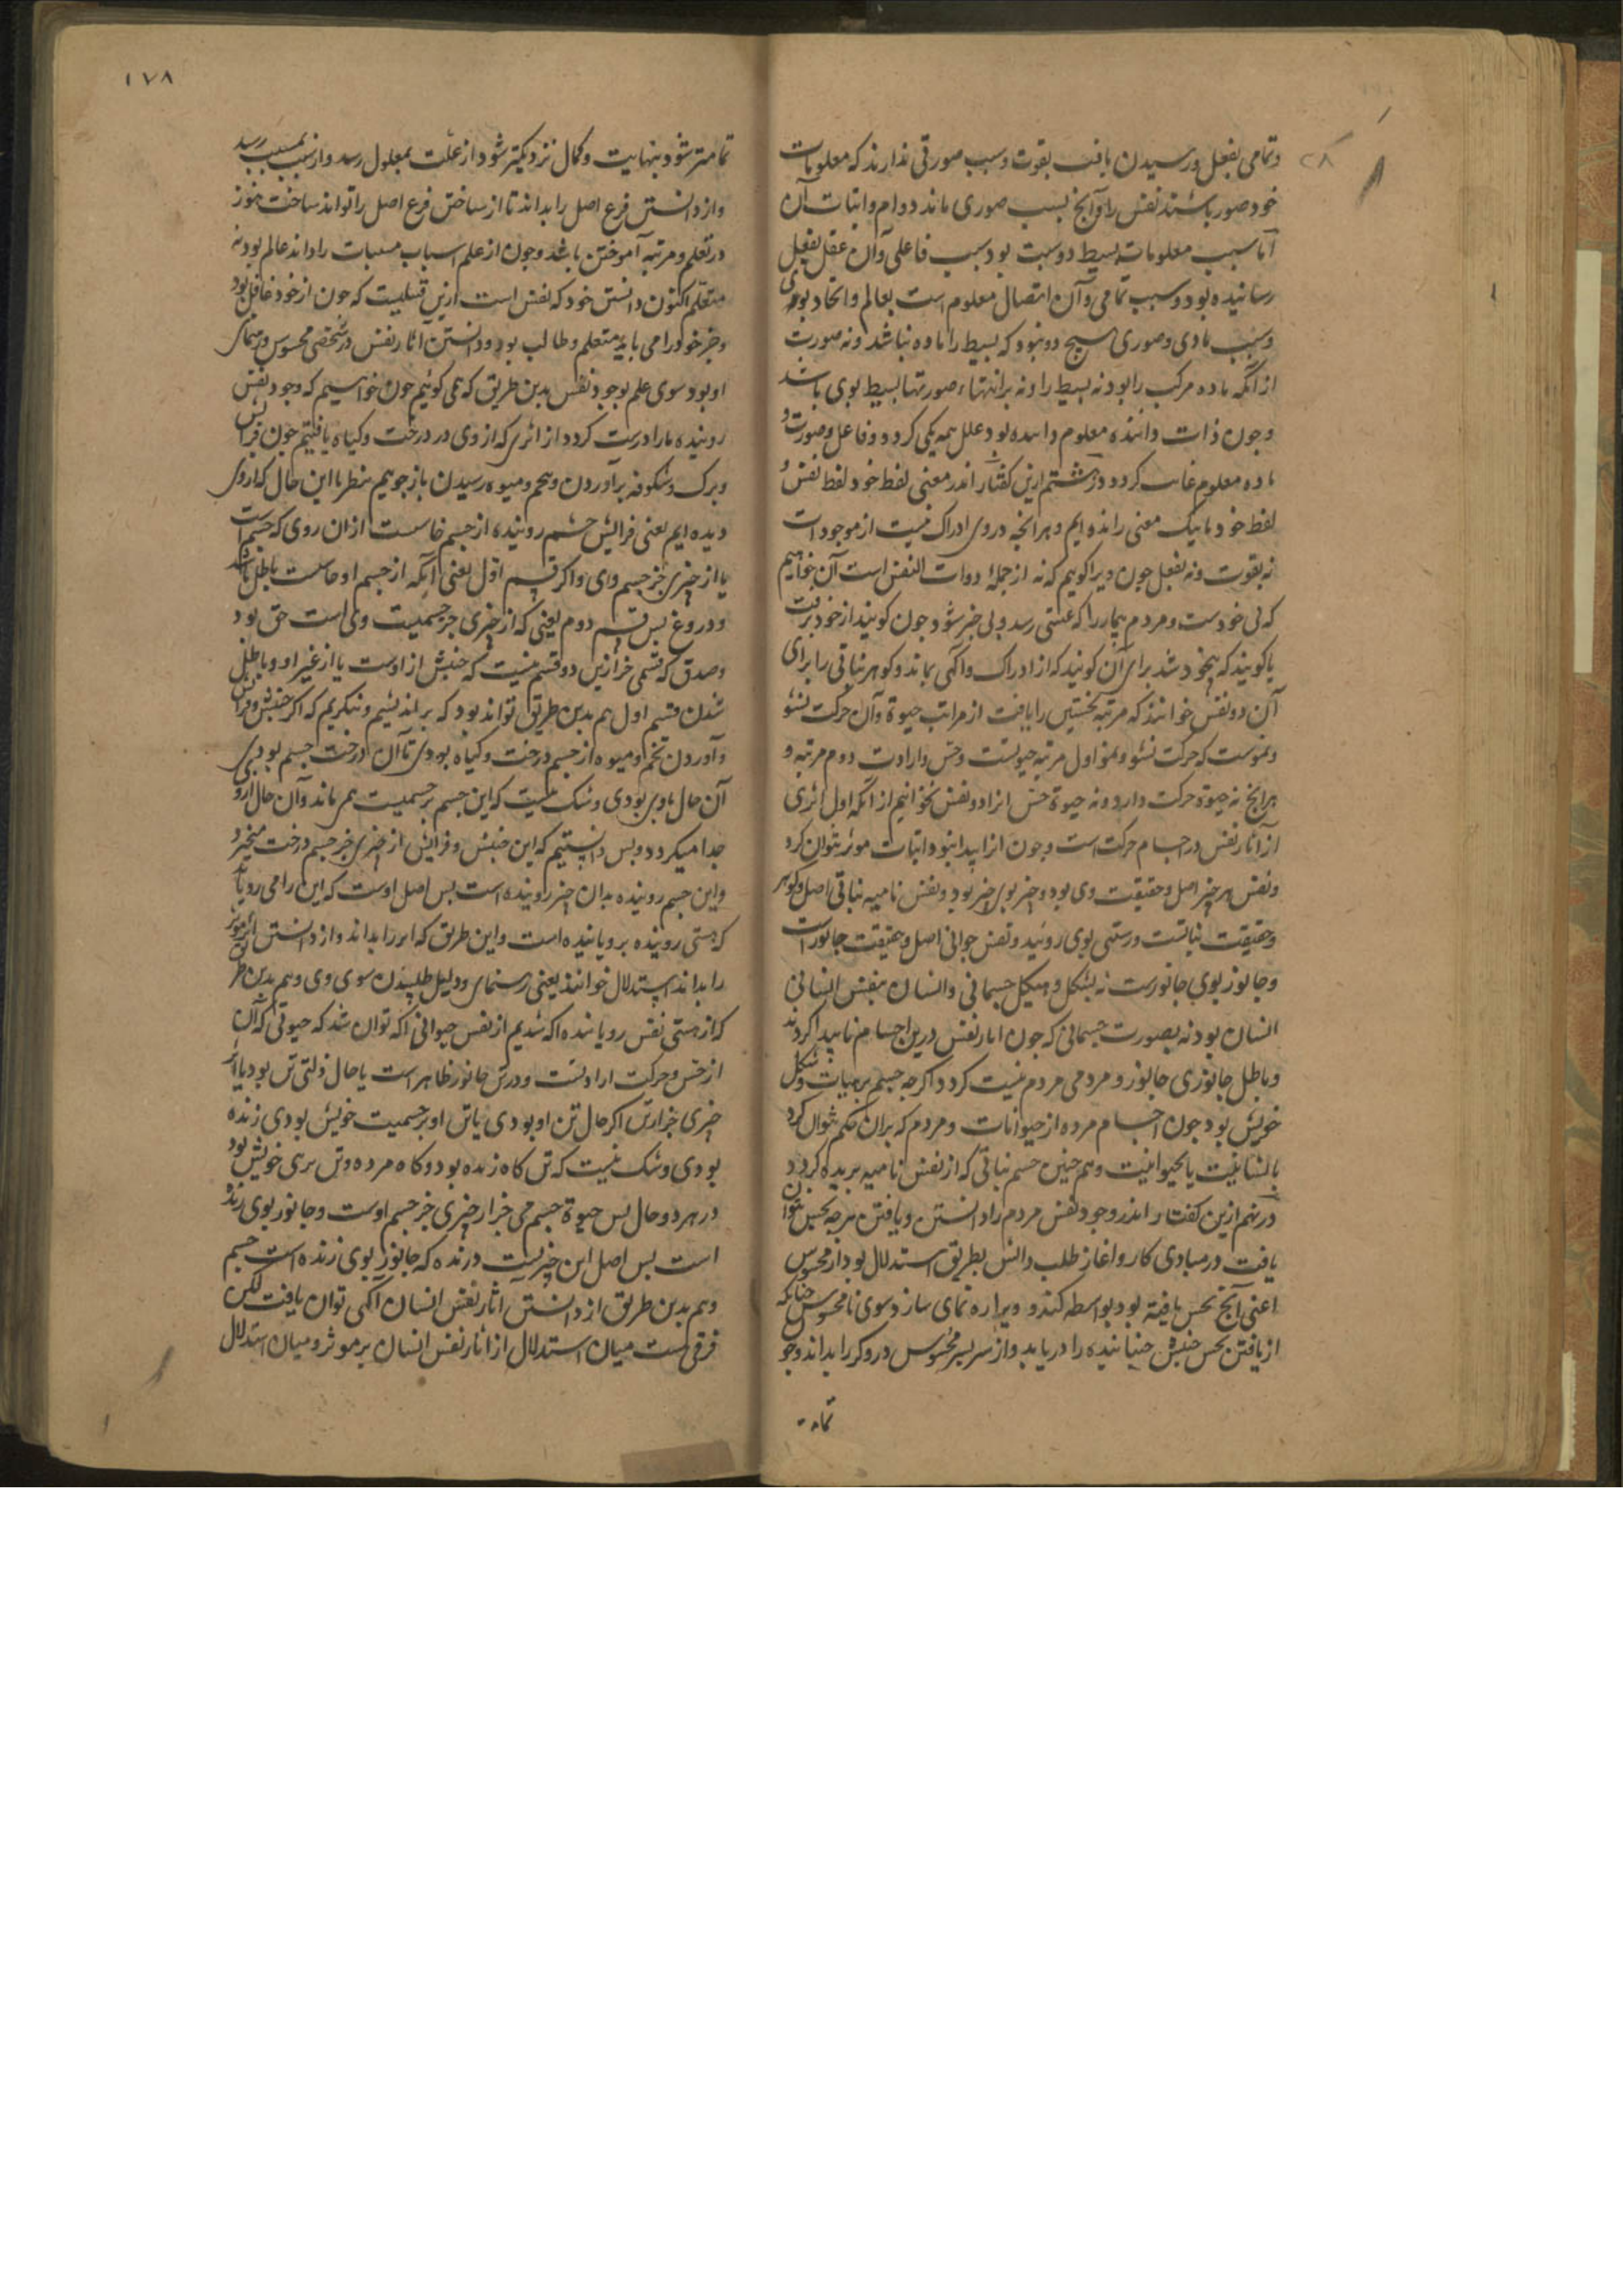 وتمامی بفعل ورسیدن یافت بقوت وسبب صورتی ندارند که معلومات
خود صور باشند نفس را وآنچ بسبب صوری ماند دوام واثبات آن
اما سبب معلومات بسیط دو سبب بود سبب فاعلی وآن عقل بفعل
رسانیده بود وسبب تمامی وآن اتصال معلوم است بعالم واتحاد بوی
وسبب مادی وصوری هیچ دو نبود که بسیط را ماده نباشد ونه صورت
از آنگه ماده مرکب را بود نه بسیط را ونه برانتها صورتها بسیط بوی باشد
وچون ذات داننده معلوم داننده بود علل همه یکی کردد وفاعل وصورت و
ماده معلوم غایت کردد در هشتم ازین کفتار اندر معنی لفظ خود لفظ نفس و
لفظ خود با یک معنی رانده ایم وهر انچه دروی ادراک نیست از موجودات
نه بقوت ونه بفعل چون ویرا کوییم که نه از جملهٔ ذوات النفس است آن خواهیم
که بی خودست ومردم بیمار را که غشی رسد وبی خبر شود چون کویند از خود برفت
یا کویند که بیخود شد برای آن کویند که از ادراک وآکهی بماند وکوهر نباتی را برای
آن ذو نفس خوانند که مرتبه نخستین را یافت از مراتب حیوة وآن حرکت نشو
ونموست که حرکت نشو ونمو اول مرتبه حیوتست وحس وارادت دوم مرتبه و
هرانچ نه حیوة حرکت دارد ونه حیوة حس انرا ذو نفس نخوانیم از آنگه اول اثری
از آثار نفس در اجسام حرکت است وچون اثر پیدا نبود اثبات موثر نتوان کرد
ونفس هر چیز اصل وحقیقت وی بود وچیز بوی چیز بود ونفس نامیه نباتی اصل وکوهر
وحقیقت نباتست ورستنی بوی روئید ونفس حیوانی اصل وحقیقت جانورست
وجانور بوی جانورست نه بشکل وهیکل جسمانی وانسان بنفس انسانی
انسان بود نه بصورت جسمانی که چون اثار نفس درین اجسام ناپیدا کردند
وباطل جانوری جانور ومردمی مردم نیست کردد اکرچه جسم برهیات وشکل
خویش بود چون اجسام مرده از حیوانات ومردم که بران حکم نتوان کرد
بانسانیت یا بحیوانیت وهم چنین جسم نباتی که از نفس نامیه بریده کردد
در نهم ازین کفتار اندر وجود نفس مردم را دانستن ویافتن هرچه بحس نتوان
یافت در مبادی کار واغاز طلب دانش بطریق استدلال بود از محسوس
اعنی آنچ بحس یافته بود بواسطه کند وویرا راه نمای سازد سوی نامحسوس چنانکه
از یافتن بحس جنبش جنباننده را دریابد واز سریر محسوس درودکر را بداند وچو
تمامت
٢٨
١٧٨
تمامتر شود بنهایت وکمال نزدیکتر شود از علت بمعلول رسد واز سبب بمسبب رسد
واز دانستن فرع اصل را بداند تا از ساختن فرع اصل را تواند ساخت هنوز
در تعلم ومرتبه آموختن باشد وچون از علم اسباب مسببات را داند عالم بود نه
متعلم اکنون دانستن خود که نفس است ازین قبیلست که چون از خود غافل بود
وجز خود را می یابد متعلم وطالب بود ودانستن آثار نفس در شخصی محسوس رهنمای
او بود سوی علم بوجود نفس بدین طریق که می کوئیم چون خواهیم که وجود نفس
روینده ما را درست کردد از اثری که از وی در درخت وکیاه یافتیم چون فزایش
وبرک وشکوفه برآوردن وتخم ومیوه رسیدن بازجوییم بنظر تا این حال که از وی
دیده ایم یعنی فزایش جسم روینده از جسم خاست از ان روی که جسم است
یا از چیزی جز جسم وی واکر قسم اول یعنی آنکه از جسم او خاست باطل باشد
ودروغ پس قسم دوم یعنی که از چیزی جز جسمیت وی است حق بود
وصدق که قسمی جز ازین دو قسم نیست که جنبش از اوست یا از غیر او وباطل
شدن قسم اول هم بدین طریق تواند بود که براندیشیم وبنکریم که اکر جنبش وفزایش
وآوردن تخم ومیوه از جسم درخت وکیاه بودی تا آن درخت جسم بودی
آن حال با وی بودی وشک نیست که این جسم بر جسمیت می ماند وآن حال ازو
جدا میکردد وپس دانستیم که این جنبش وفزایش از چیزی جز جسم درخت میخیزد
واین جسم روینده بدان چیز روینده است پس اصل اوست که این را می رویاند
که هستی روینده برویاننده است واین طریق که اثر را بداند واز دانستن اثر موثر
را بداند استدلال خوانند یعنی رهنمای ودلیل طلبیدن سوی وی وهم بدین طریق
که از هستی نفس رویاننده اکه شدیم از نفس حیوانی اکه توان شد که حیوتی که آن
از حس وحرکت ارادتست ودر تن جانور ظاهر است یا حال ذاتی تن بود یا اثر
چیزی جز از تن اکر حال تن او بودی یا تن او بر جسمیت خویش بودی زنده
بودی وشک نیست که تن کاه زنده بود وکاه مرده وتن برتنی خویش بود
در هر دو حال پس حیوة جسم می جز از چیزی جز جسم اوست وجانور بوی زنده
است پس اصل این چیزیست درنده که جانور بوی زنده است جسم
وهم بدین طریق از دانستن آثار نفس انسان آکهی توان یافت لکن
فرقی است میان استدلال از آثار نفس انسان بر موثر ومیان استدلال